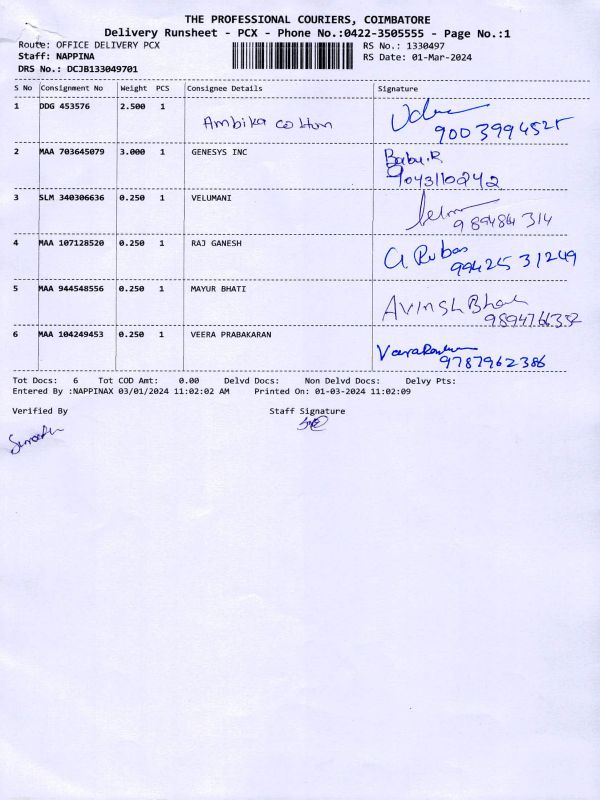 THE PROFESSIONAL COURIERS, COIMBATORE
Delivery Runsheet - PCX - Phone No.:0422-3505555 - Page No.:1
Route: OFFICE DELIVERY PCX RS No.: 1330497
Staff: NAPPINA RS Date: 01-Mar-2024
DRS No.: DCJB133049701
S No Consignment No Weight PCS Consignee Details Signature
1 DDG 453576 2.500 1
Ambika cotton
9003994525
2 MAA 703645079 3.000 1 GENESYS INC Babu.R
9043110242
3 SLM 340306636 0.250 1 VELUMANI
989484314
4 MAA 107128520 0.250 1 RAJ GANESH
9942531249
5 MAA 944548556 0.250 1 MAYUR BHATI
9894766332
6 MAA 104249453 0.250 1 VEERA PRABAKARAN
9787962386
Tot Docs: 6 Tot COD Amt: 0.00 Delvd Docs: Non Delvd Docs: Delvy Pts:
Entered By :NAPPINAX 03/01/2024 11:02:02 AM Printed On: 01-03-2024 11:02:09
Verified By Staff Signature